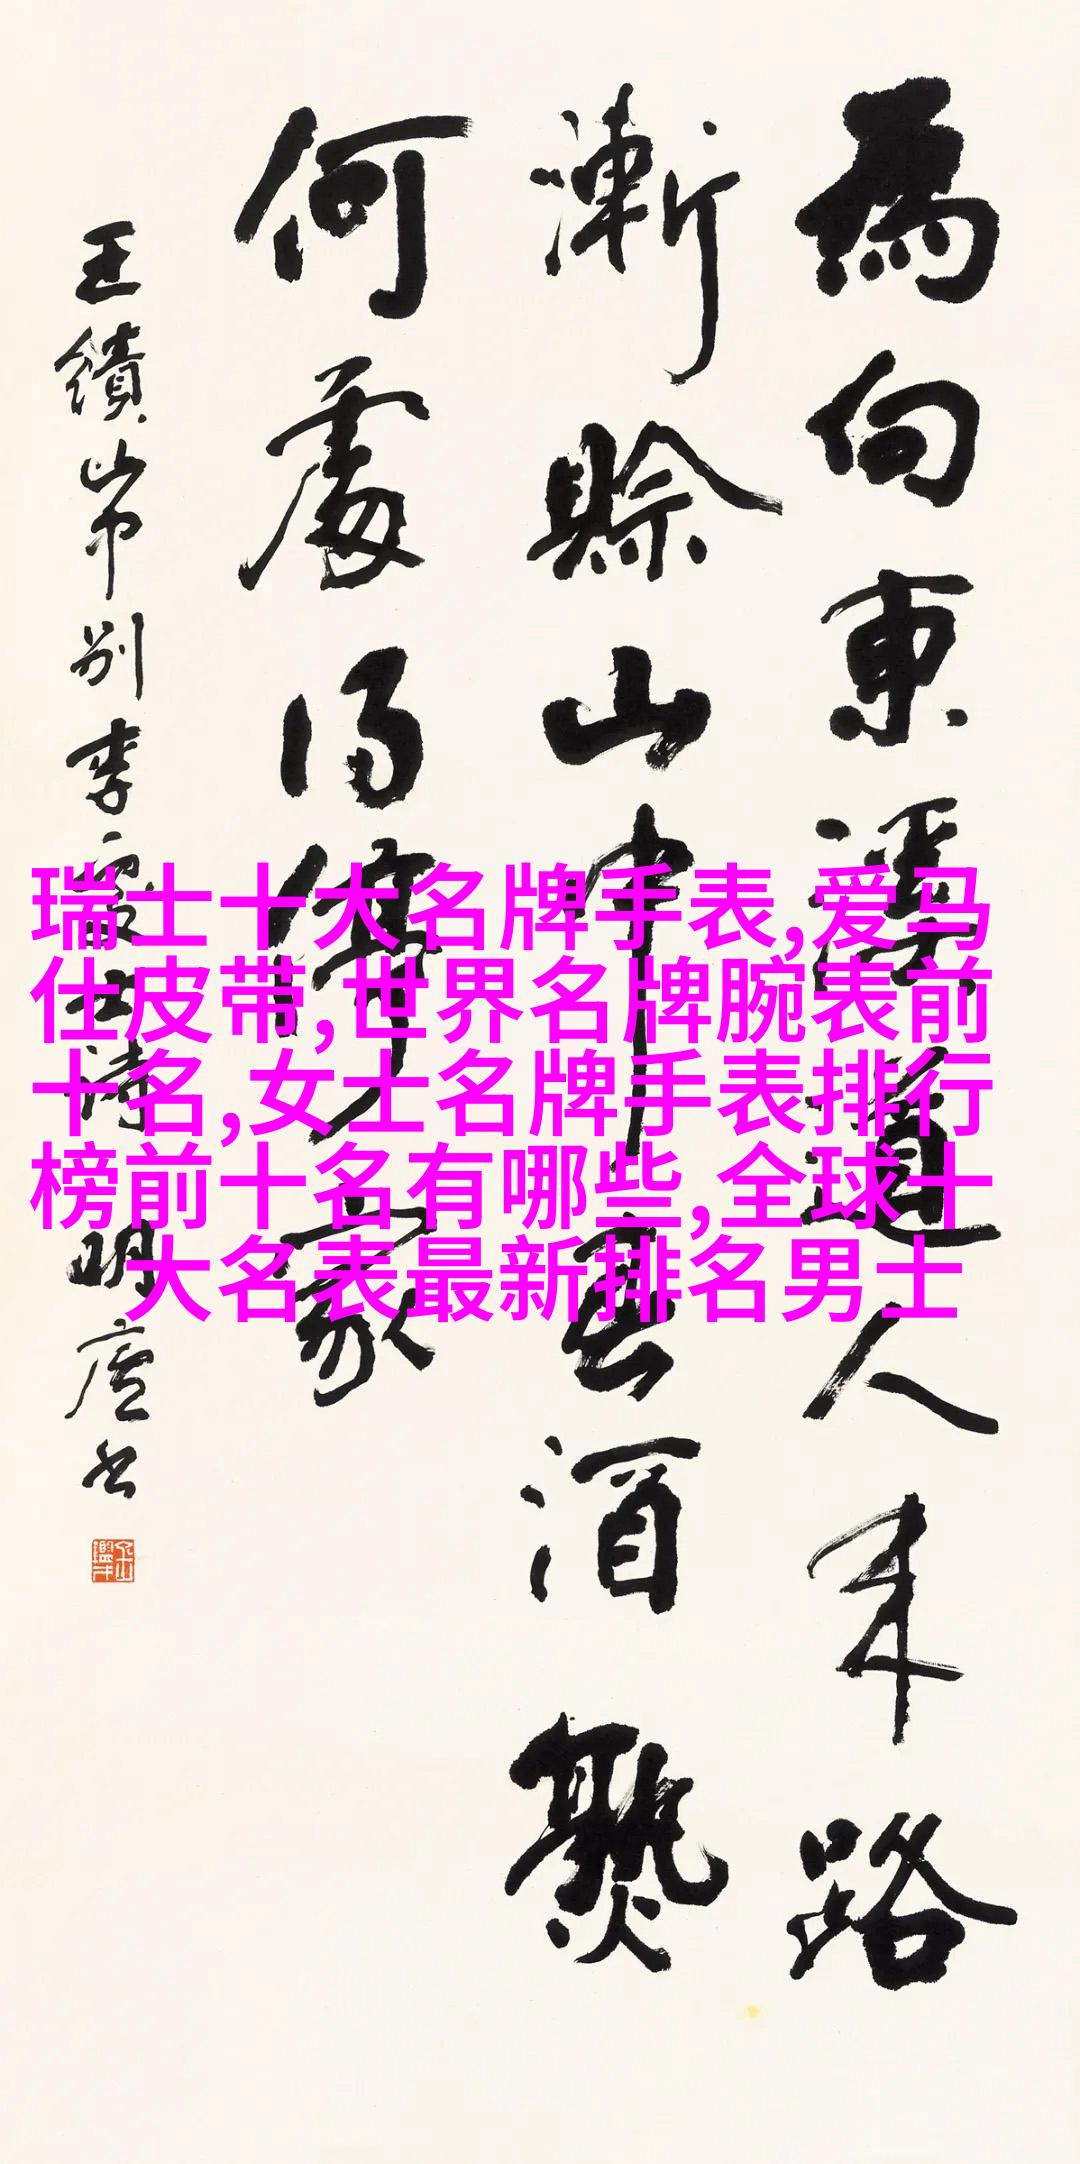 為向東溪道人来路
漸賒山中春酒熟
何處得停家
王績山中别李處士诗明廬书
瑞士十大名牌手表,爱马
仕皮带,世界名牌腕表前
十名,女士名牌手表排行
榜前十名有哪些,全球十
大名表最新排名男士